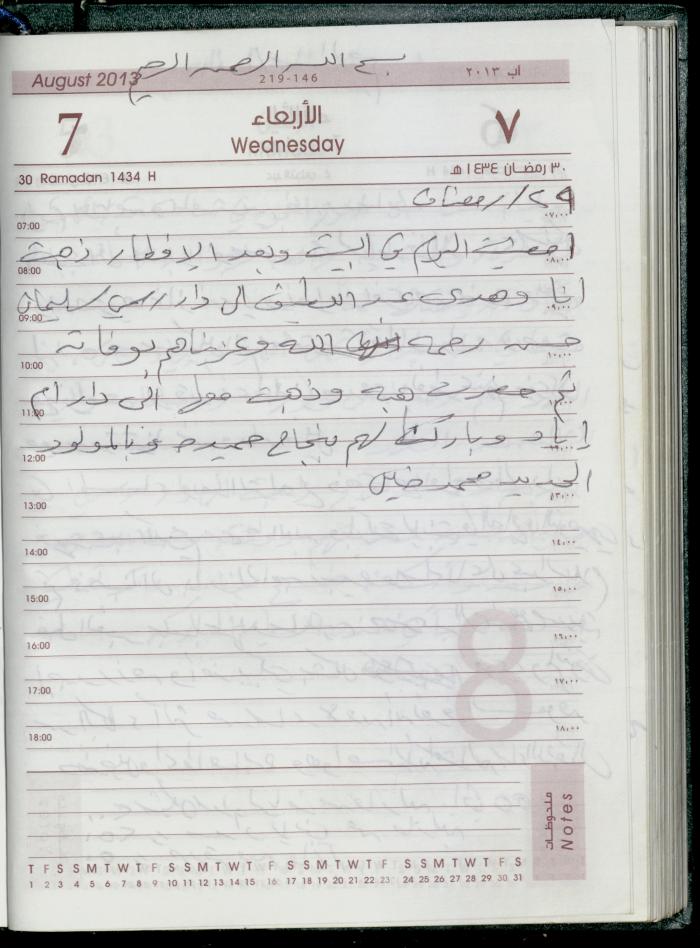 بسم الله الرحمن الرحيم
August 2013
219-146
آب ٢٠١٣
7
الأربعاء
Wednesday
٧
30 Ramadan 1434 H
٣٠ رمضان ١٤٣٤ هـ
٢٩/رمضان
07:00
٠٧,٠٠
امضيت اليوم في البيت وبعد الافطار ذهبت
08:00
٠٨,٠٠
انا وهدى عبد اللطيف الى دار سليمان
09:00
٠٩,٠٠
حسن رحمه الله وعزيناهم بوفاته
10:00
١٠,٠٠
ثم حضرت هبه وذهبت معها الى دار ام
11:00
إياد وباركنا لهم بنجاح حميده وبالمولود
12:00
الجديد محمد
13:00
١٣,٠٠
14:00
١٤,٠٠
15:00
١٥,٠٠
16:00
١٦,٠٠
17:00
١٧,٠٠
18:00
١٨,٠٠
8
ملحوظات
Notes
T F S S M T W T F S S M T W T F S S M T W T F S S M T W T F S
1 2 3 4 5 6 7 8 9 10 11 12 13 14 15 16 17 18 19 20 21 22 23 24 25 26 27 28 29 30 31